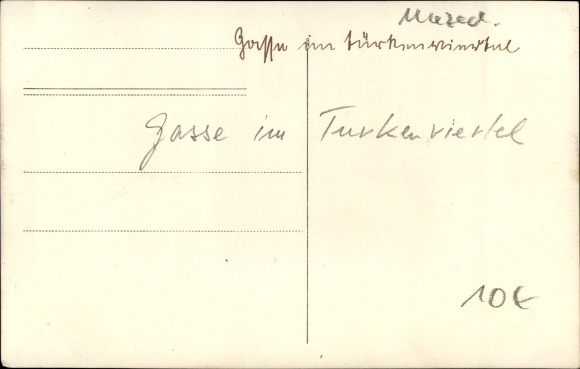 Mazed.
Gasse im türkenviertel
Gasse im Turkenviertel
10€